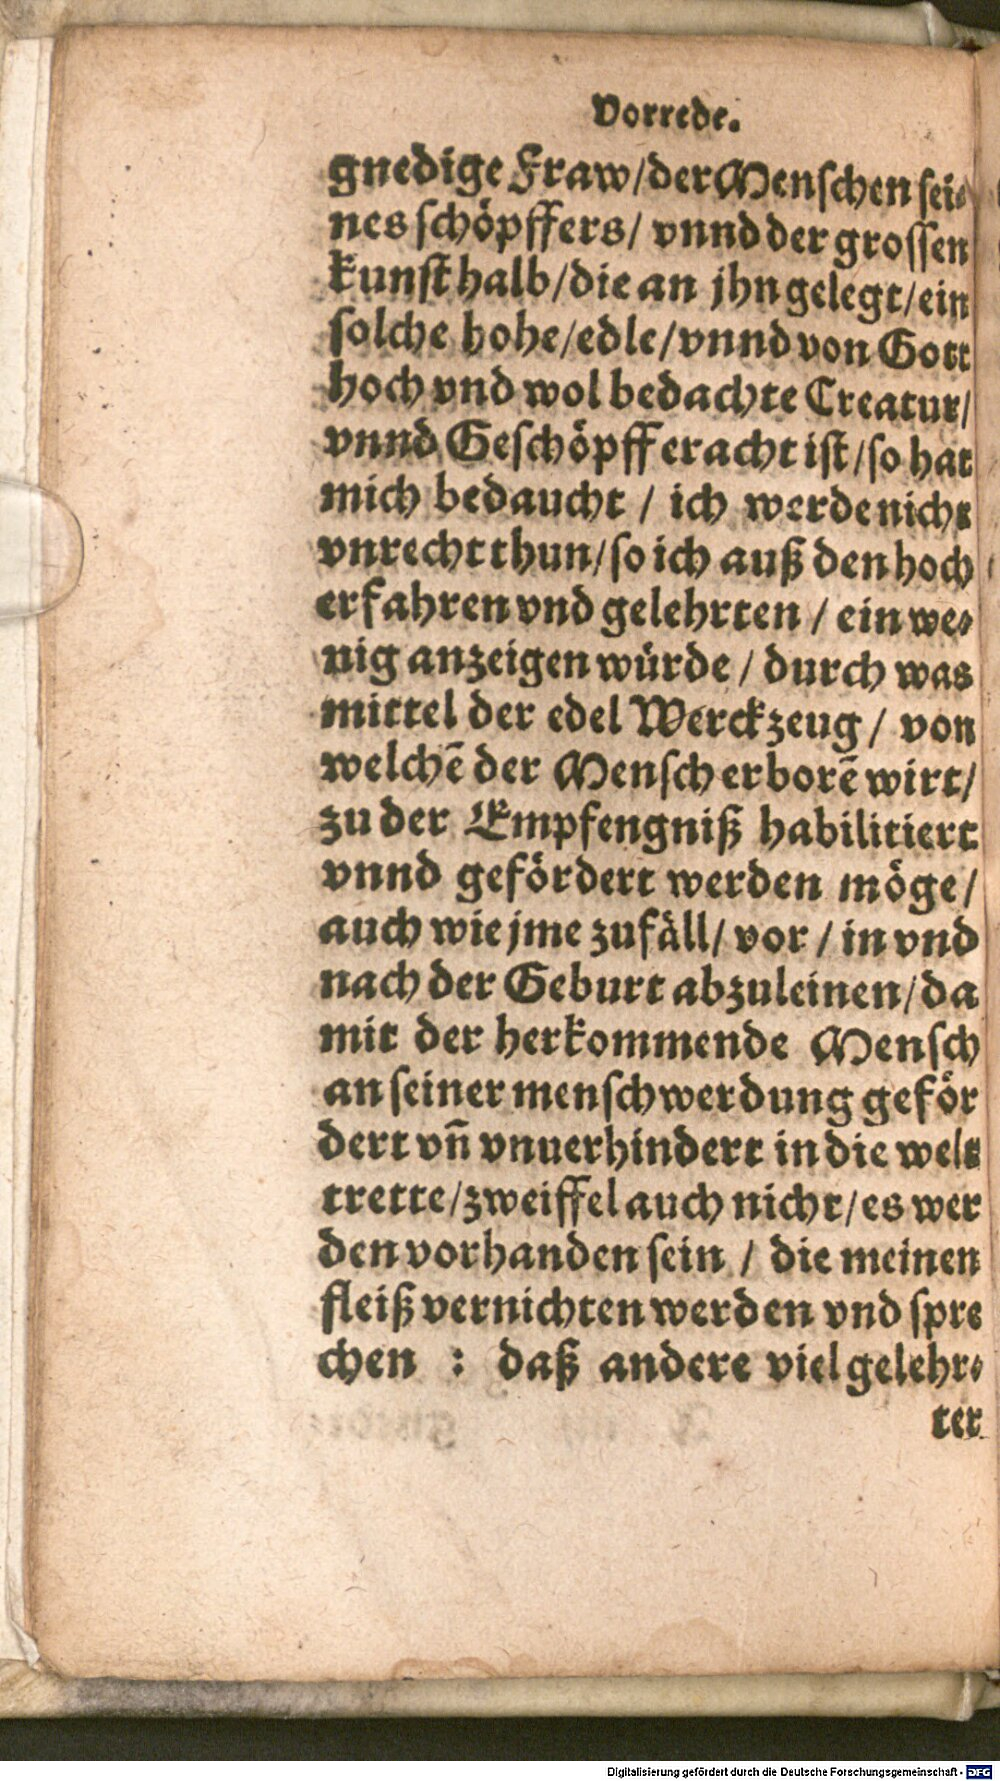 Vorrede.
gnedige Fraw/der Menschen sei⸗
nes schöpffers/ vnnd der grossen
kunst halb/die an jhn gelegt/ein
solche hohe/edle/vnnd von Gott
hoch vnd wol bedachte Creatur/
vnnd Geschöpff eracht ist/so hat
mich bedaucht / ich werde nicht
vnrecht thun/so ich auß den hoch
erfahren vnd gelehrten / ein we⸗
nig anzeigen würde / durch was
mittel der edel Werckzeug / von
welchē der Mensch erborē wirt/
zu der Empfengniß habilitiert
vnnd gefördert werden möge/
auch wie jme zufäll/ vor / in vnd
nach der Geburt abzuleinen/da
mit der herkommende Mensch
an seiner menschwerdung geför
dert vn̄ vnuerhindert in die welt
trette/zweiffel auch nicht/es wer
den vorhanden sein / die meinen
fleiß vernichten werden vnd spre
chen : daß andere viel gelehr⸗
ter
Digitalisierung gefördert durch die Deutsche Forschungsgemeinschaft - DFG